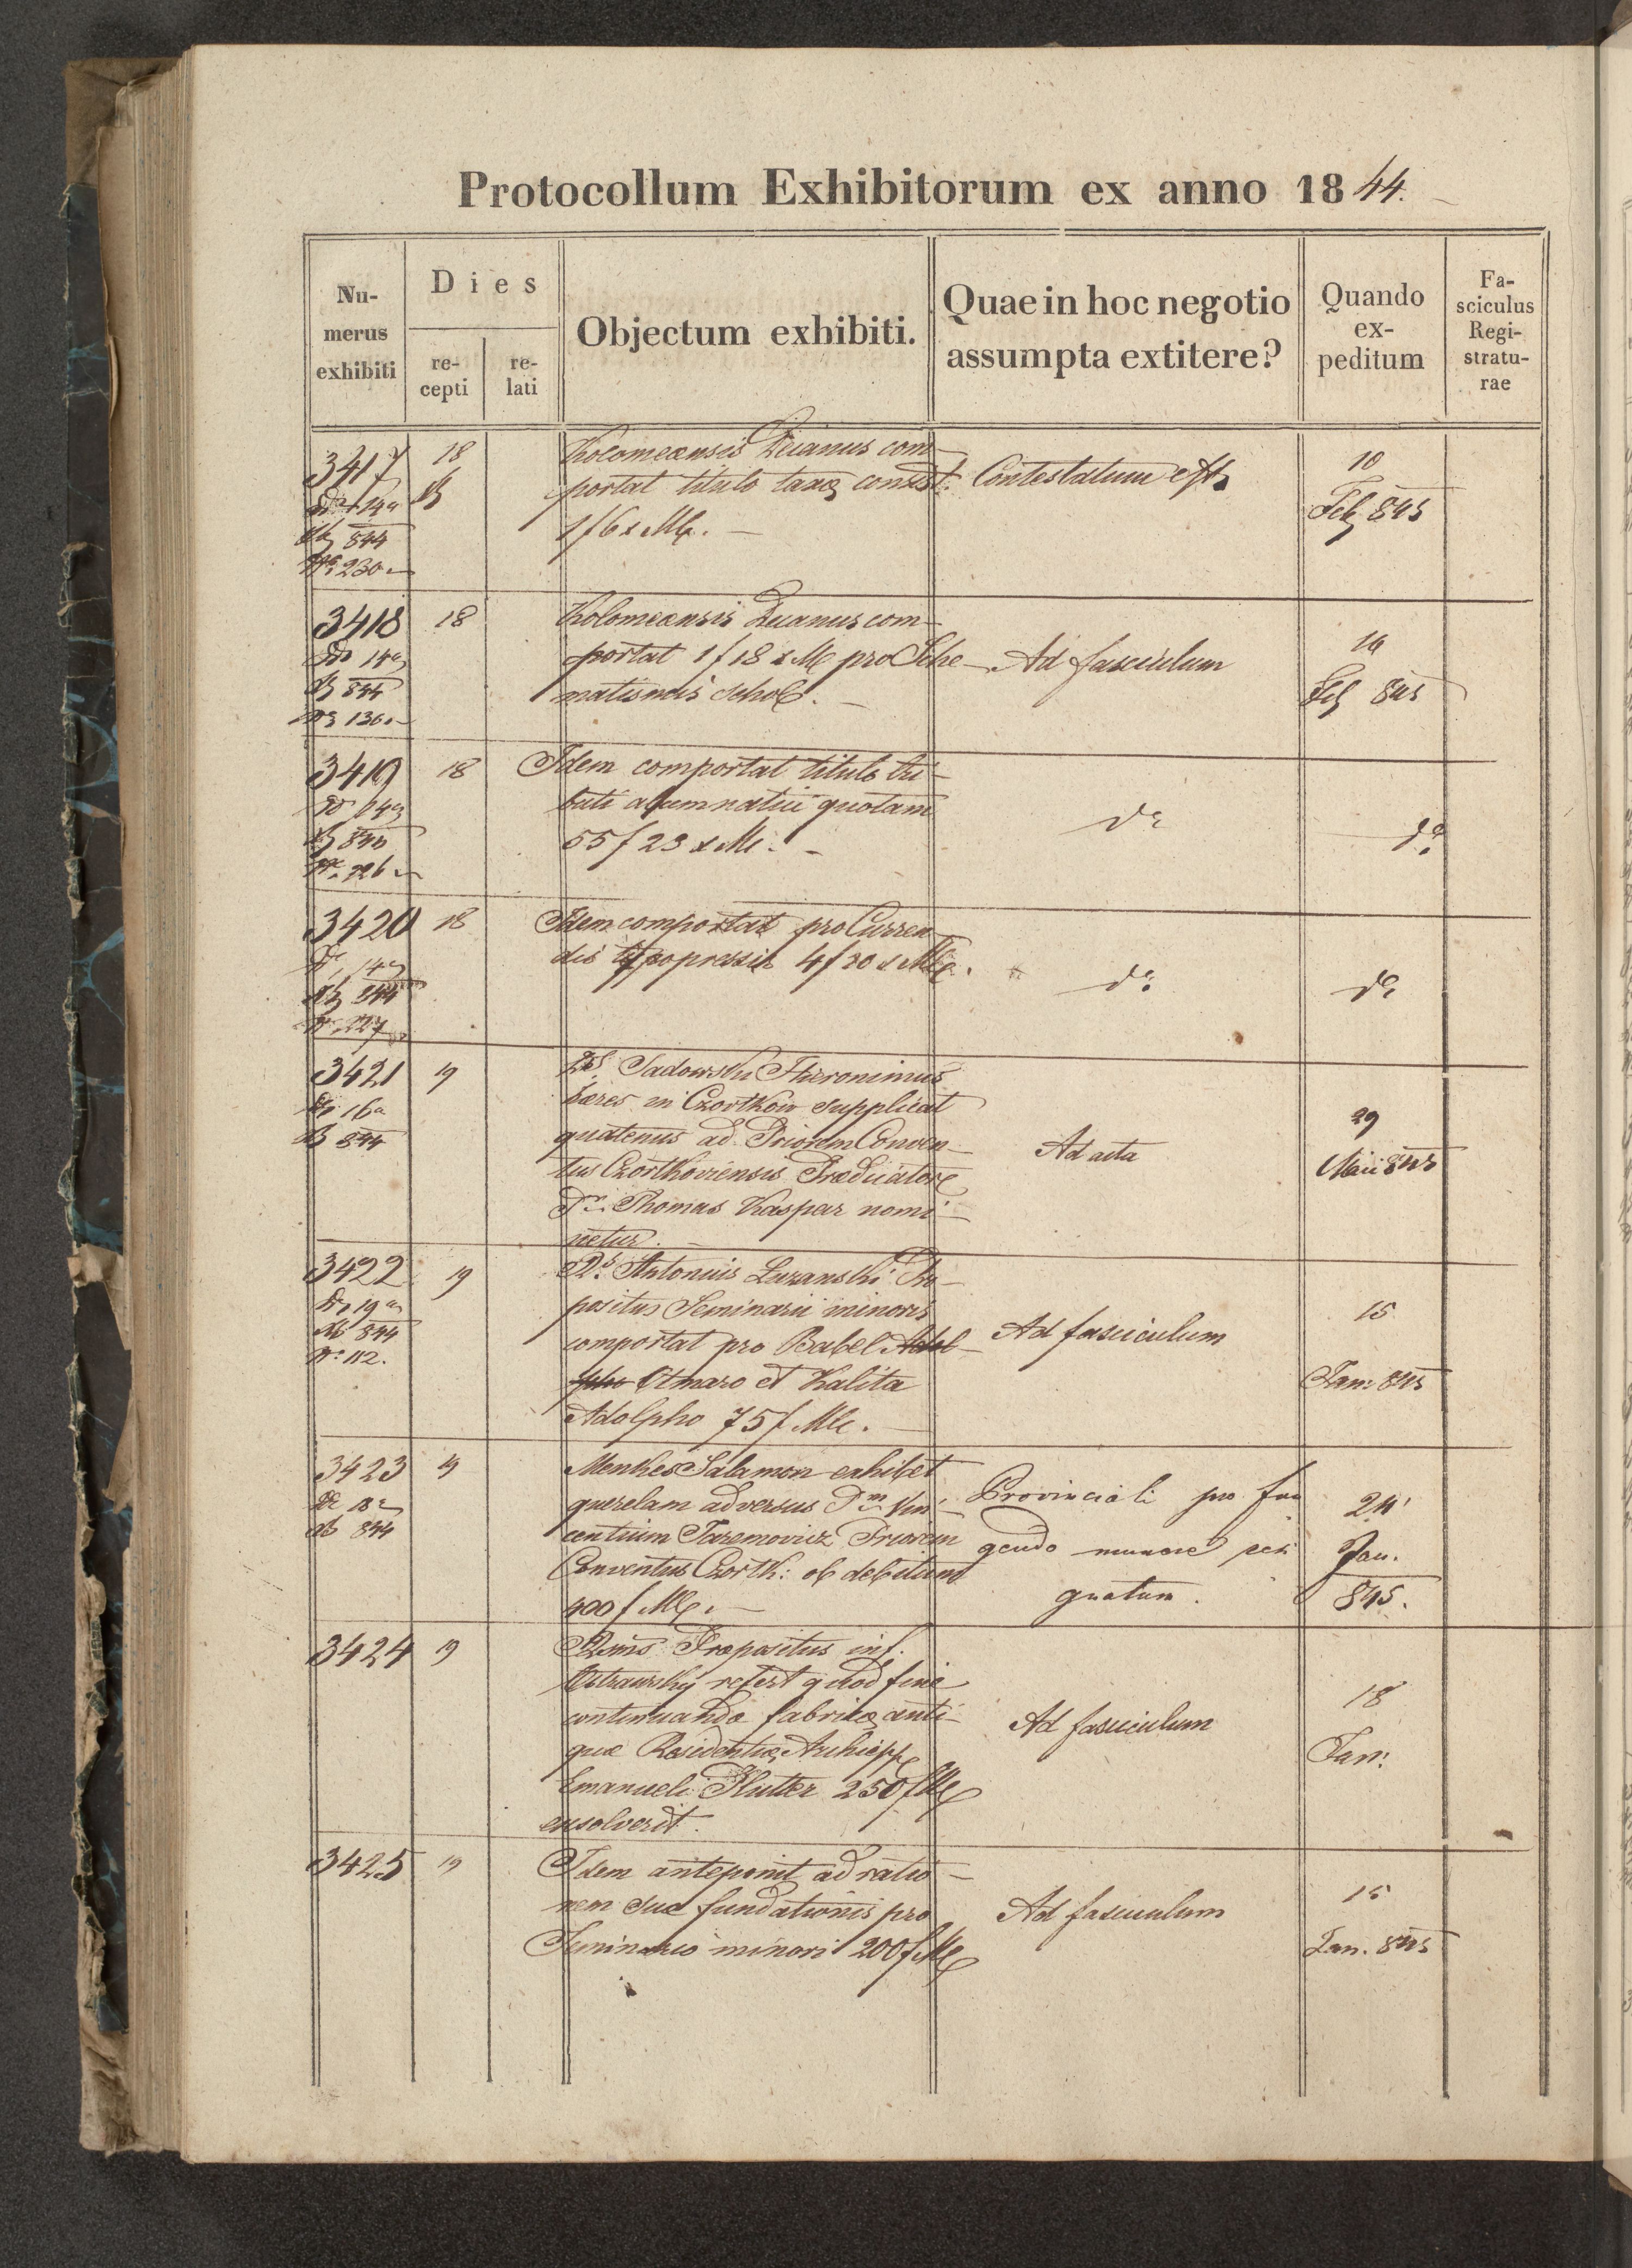 Protocollum Exhibitorum ex anno 1844.
Nu-
merus
exhibiti
Dies
re-
cepti
re-
lati
Objectum exhibiti.
Quae in hoc negotio
assumpta extitere?
Quando
ex-
peditum
Fa-
sciculus
Regi-
stratu-
rae
3417
844
230
18
Kolomeansis Decanus com-
portat titulo taxæ consist:
1 f 6 x Mc. —
Contestatum est
10
Feb 845
3418
844
130
18
Kolomeansis Decanus com-
portat 1 f 18 x Mc pro Sche-
matismis schol. —
Ad fasciculum
Feb 845
3419
226
18
Idem comportat titulo tri-
buti alumnatici quotam
55 f 23 x Mc. —
do
do
3420
844
227
18
Idem comportat pro Curren-
dis typopressis 4 f 20 x Mc.
do
do
3421
16a
844
19
Sadowski Hieronimus
hæres in Czortkow supplicat
quatenus ad Priorem Conven-
tus Czorthoviensis Prædicatore
Thomas Kaspar nomi-
netur. —
Ad acta
29
Maii 845
3422
19a
844
No 112.
19
Antonius Luzanski Præ-
positus Seminarii minoris
comportat pro Babel Adol-
pho Otmaro et Kalita
Adolpho 75 f Mc. —
Ad fasciculum
15
Jan: 845
3423
18a
844
19
Menkes Salamon exhibet
querelam adversus Dm Vin-
centium Jaremovicz Priorem
Conventus Czorth: ob debitum
400 f Mc. —
Provinciali pro fun
gendo munere
24
Jan.
845.
3424
19
Præpositus inf.
Ostrawsky refert quod fine
continuandæ fabricæ anti-
quæ Residentiæ Archiepp
Emanueli Plutter 250 f Mc
exsolverit.
Ad fasciculum
18
Jan:
3425
19
Idem anteponit ad ratio-
nem suæ fundationis pro
Seminario minori 200 f Mc
Ad fasciculum
15
Jan. 845